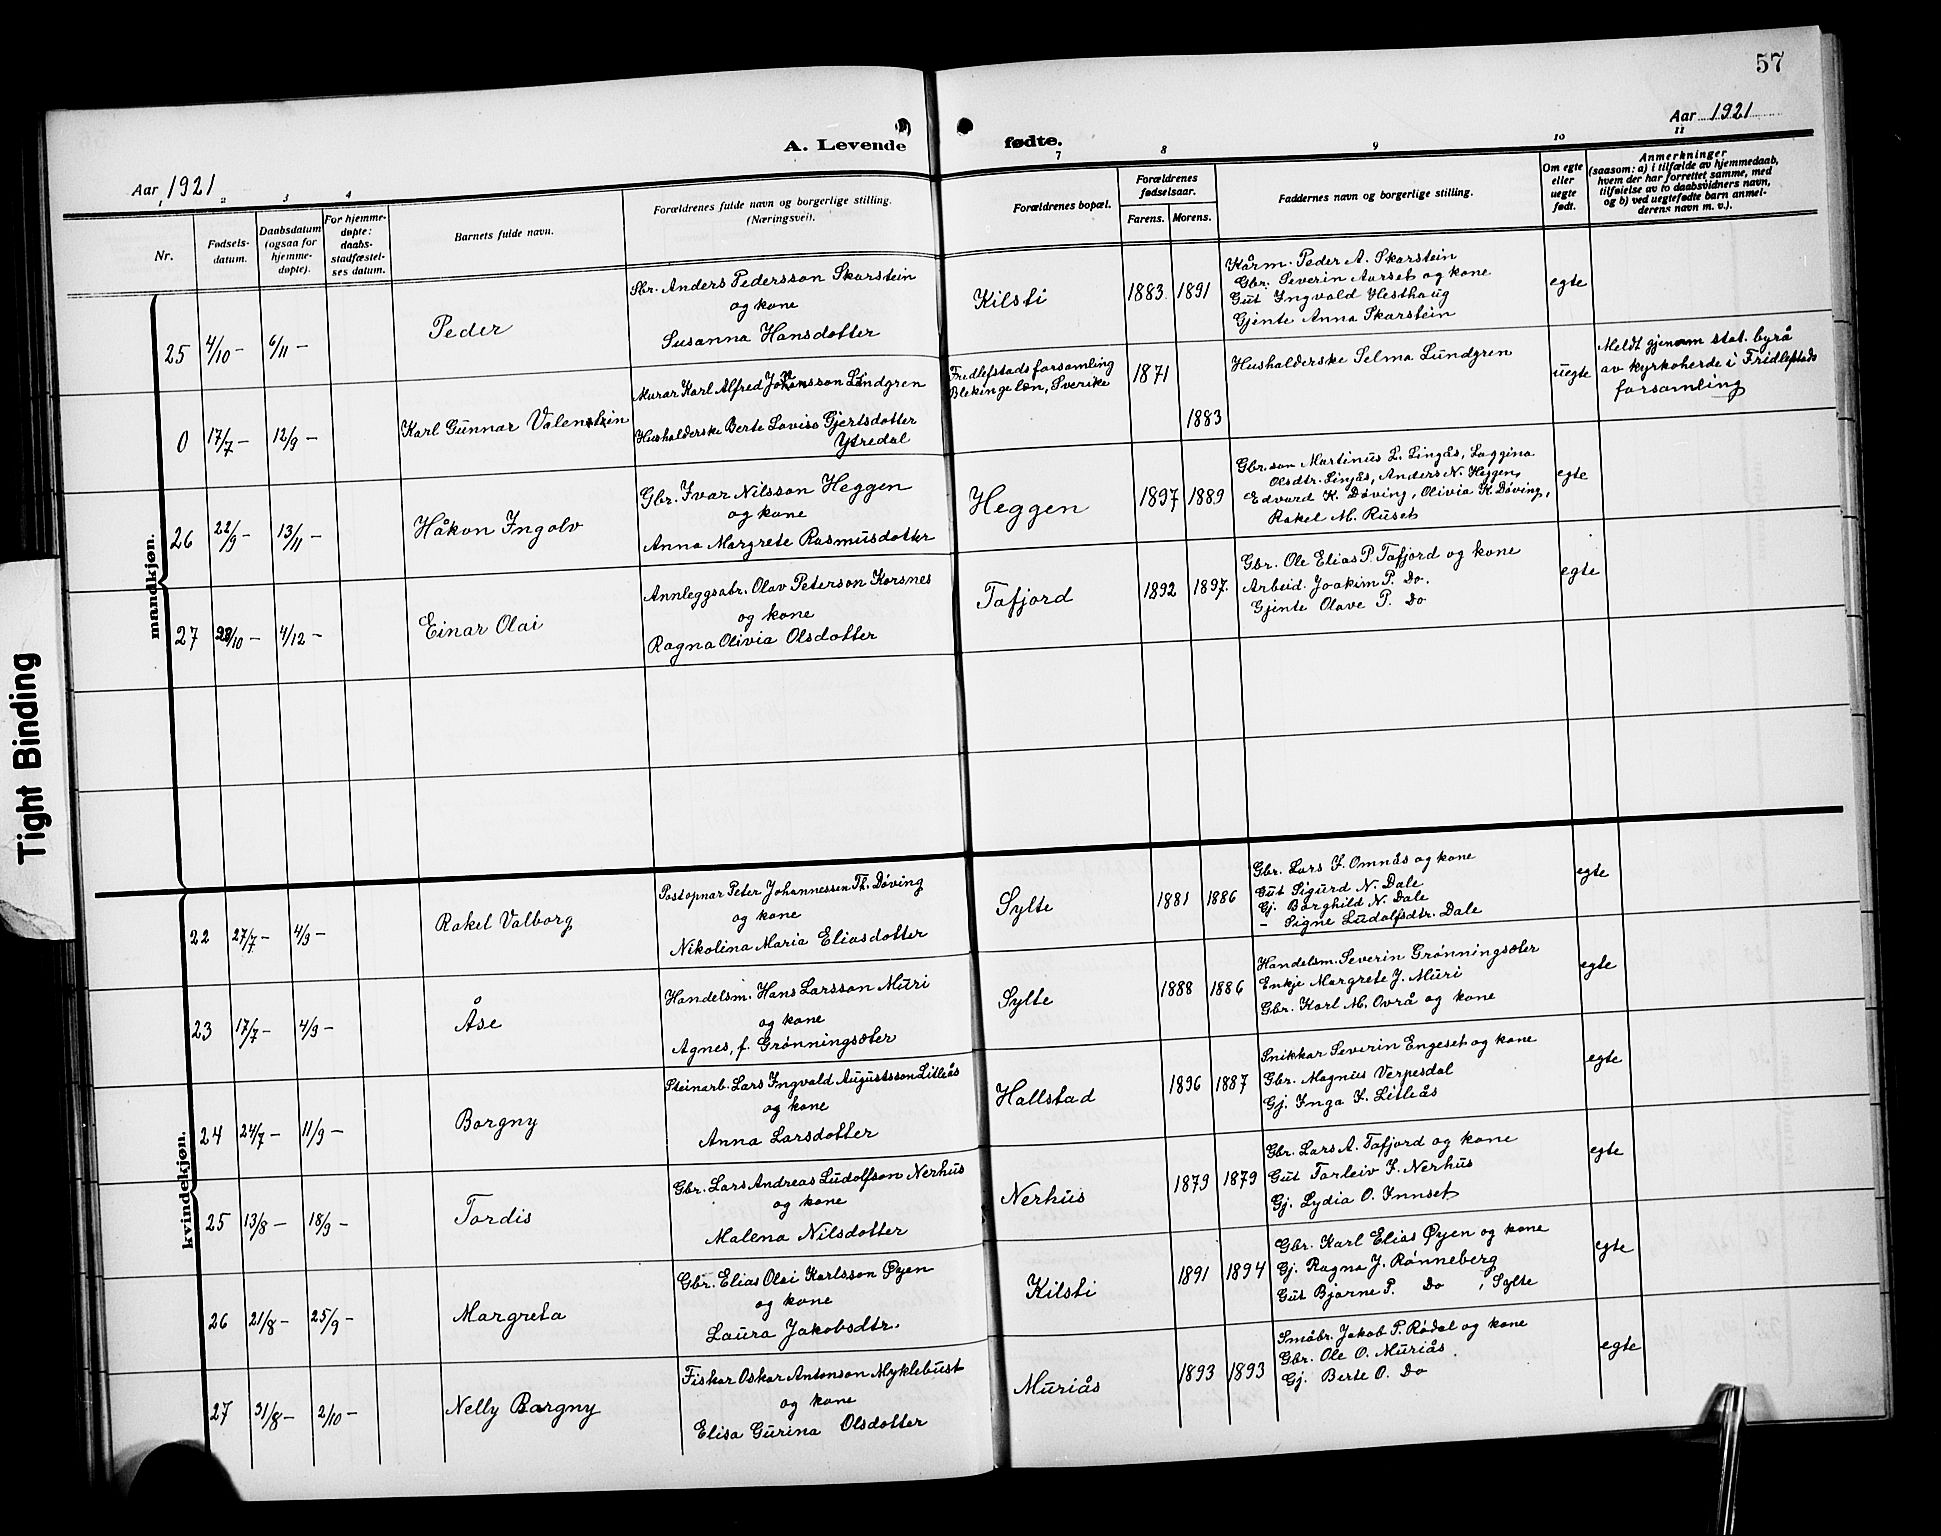 57
Aar 1921
Aar 1921
A. Levende
fødte.
2
3
4
7
8
9
10
11
Nr.
Fødsels-
datum.
Daabsdatum
(ogsaa for
hjemme-
døpte).
For hjemme-
døpte:
daabs-
stadfæstel-
ses datum.
Barnets fulde navn.
Forældrenes fulde navn og borgerlige stilling.
(Næringsvei).
Forældrenes bopæl.
Forældrenes
fødselsaar.
Farens.
Morens.
Faddernes navn og borgerlige stilling.
Om egte
eller
uegte
født.
Anmerkninger
(saasom: a) i tilfælde av hjemmedaab,
hvem der har forrettet samme, med
tilføielse av to daabsvidners navn,
og b) ved uegtefødte barn anmel-
derens navn m. v.).
mandkjøn.
25
4/10 –
6/11 –
Peder
Sbr. Anders Pedersson Skarstein
og kone
Susanna Hansdotter
Kilsti
1883
1891
Kårm. Peder A. Skarstein
Gbr. Severin Aurset og kone
Gut Ingvald Hesthaug
Gjente Anna Skarstein
egte
0
17/7 –
12/9 –
Karl Gunnar Valentin
Murar Karl Alfred Johansson Lindgren
Husholderske Berte Lovise Gjertsdotter
Ytredal
Fridlefstads forsamling
Blekinge len, Sverike
1871
1883
Husholderske Selma Lundgren
uegte
Meldt gjenom stat. byrå
av kyrkoherde i Fridlefstads
forsamling
26
22/9 –
13/11 –
Håkon Ingolv
Gbr. Ivar Nilsson Heggen
og kone
Anna Margrete Rasmusdotter
Heggen
1897
1889
Gbr.son Martinus L. Lingås, Laggina
Olsdtr. Linjås, Anders N. Heggen,
Edvard K. Døving, Olivia K. Døving,
Rakel M. Ruset
egte
27
28/10 –
4/12 –
Einar Olai
Annleggsabr. Olav Peterson Korsnes
og kone
Ragna Olivia Olsdotter
Tafjord
1892
1897.
Gbr. Ole Elias P. Tafjord og kone
Arbeid. Joakim P. Do.
Gjente Olave P. Do
egte
kvindekjøn.
22
27/7 –
4/9 –
Rakel Valborg
Postopnar Peter Johannessen Th. Døving
og kone
Nikolina Maria Eliasdotter
Sylte
1881
1886
Gbr. Lars I. Omnås og kone
Gut Sigurd N. Dale
Gj. Borghild N. Dale
– Signe Ludolfsdtr. Dale
egte
23
17/7 –
4/9 –
Åse
Handelsm. Hans Larsson Muri
og kone
Agnes, f. Grønningsæter
Sylte
1888
1886
Handelsm. Severin Grønningsæter
Enkje Margrete J. Muri
Gbr. Karl M. Ovrå og kone
egte
24
24/7 –
11/9 –
Borgny
Steinarb. Lars Ingvald Augustsson Litleås
og kone
Anna Larsdotter
Hallstad
1896
1887
Snikkar Severin Engeset og kone
Gbr. Magnus Verpesdal
Gj. Inga I. Litleås
egte
25
13/8 –
18/9 –
Tordis
Gbr. Lars Andreas Ludolfson Nerhus
og kone
Malena Nilsdotter
Nerhus
1879
1879
Gbr. Lars A. Tafjord og kone
Gut Torleiv I. Nerhus
Gj. Lydia O. Innset
egte
26
21/8 –
25/9 –
Margreta
Gbr. Elias Olai Karlsson Øyen
og kone
Laura Jakobsdtr.
Kilsti
1891
1894
Gbr. Karl Elias Øyen og kone
Gj. Ragna J. Rønneberg
Gut Bjarne P. Do i Sylte
egte
27
31/8 –
2/10 –
Nelly Borgny
Fiskar Oskar Antonson Myklebust
og kone
Elisa Gurina Olsdotter
Muriås
1893
1893
Småbr. Jakob P. Rødal og kone
Gbr. Ole O. Muriås
Gj. Berte O. Do
egte
Tight Binding